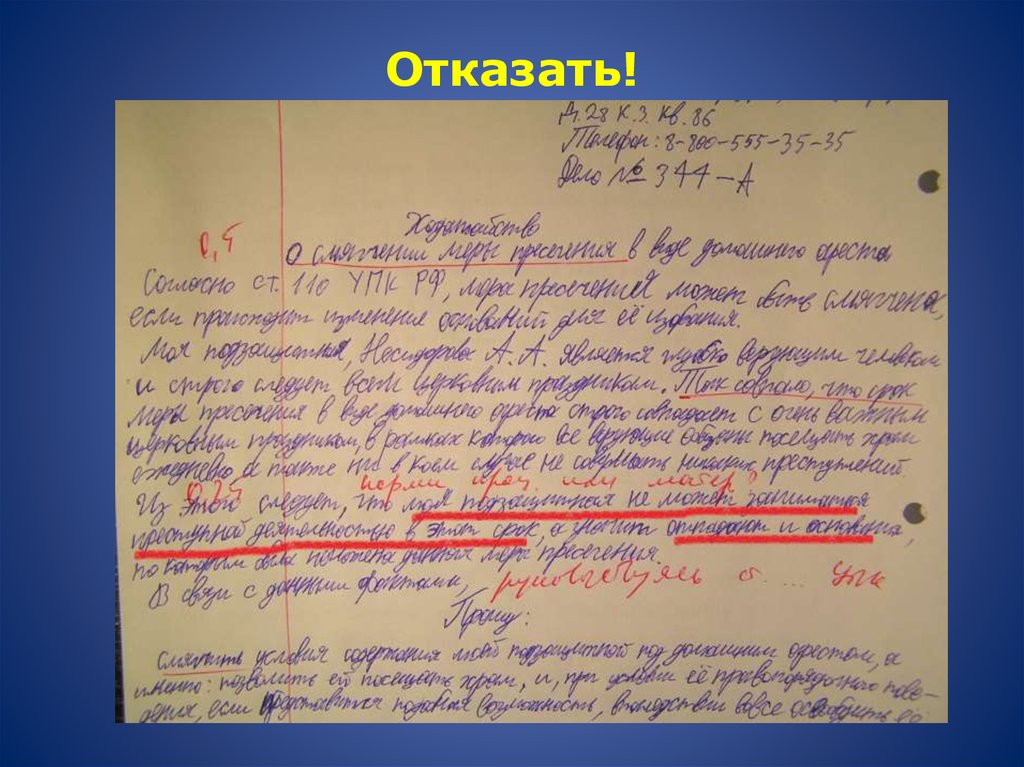 Отказать!
Д.28 К.3. Кв.86
Телефон: 8-800-555-35-35
Дело № 344-А
Ходатайство
0,5
О смягчении меры пресечения в виде домашнего ареста
Согласно ст. 110 УПК РФ, мера пресечения может быть смягчена,
если происходит изменение оснований для её избрания.
Моя подзащитная, Несидорова А.А. является глубоко верующим человеком
и строго следует всем церковным праздникам. Так совпало, что срок
меры пресечения в виде домашнего ареста строго совпадает с очень важным
церковным праздником, в рамках которого все верующие обязаны посещать храм
ежедневно а также ни в коем случае не совершать никаких преступлений.
нормы или матер?
Из этого следует, что моя подзащитная не может заниматься
преступной деятельностью в этот срок, а значит отпадают и основания,
по которым была положена данная мера пресечения.
В связи с данными фактами, руководствуясь ст. ... УПК
Прошу:
Смягчить условия содержания моей подзащитной под домашним арестом, а
именно: позволить ей посещать храм, и, при условии её правопорядочного пове-
дения, если представится подобная возможность, впоследствии вовсе освободить её